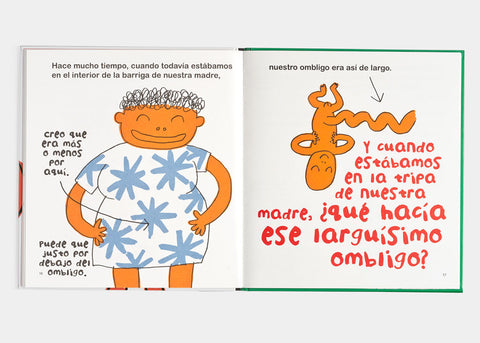 Hace mucho tiempo, cuando todavía estábamos
en el interior de la barriga de nuestra madre,
creo que
era más
o menos
por
aquí.
Puede que
justo por
debajo del
ombligo.
nuestro ombligo era así de largo.
Y cuando
estábamos
en la tripa
de nuestra
madre, ¿qué hacía
ese larguísimo
ombligo?